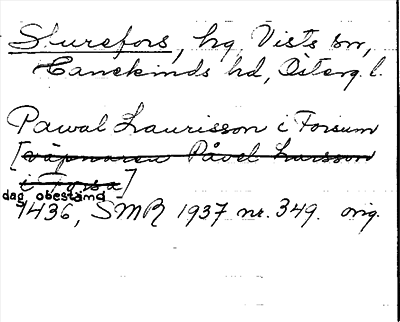 Sturefors, hg, Vists sn,
Hanekinds hd, Österg. l.
Pawal Laurisson i Forsum
[väpnaren Påvel Larsson
i Forsa]
dag obestämd
1436, SMR 1937 nr. 349. orig.